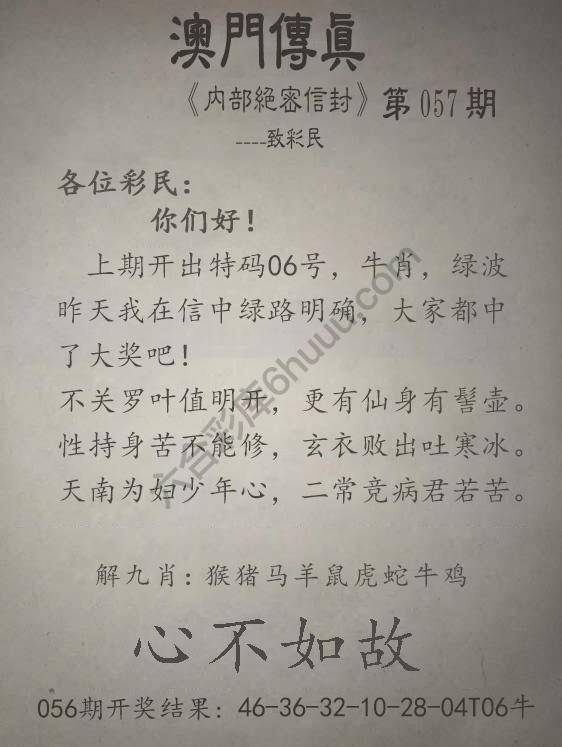 澳門傳眞
《内部絕密信封》第057期
----致彩民
各位彩民：
你们好！
上期开出特码06号，牛肖，绿波
昨天我在信中绿路明确，大家都中
了大奖吧！
不关罗叶值明开，更有仙身有髻壶。
性持身苦不能修，玄衣败出吐寒冰。
天南为妇少年心，二常竞病君若苦。
解九肖：猴猪马羊鼠虎蛇牛鸡
心不如故
056期开奖结果：46-36-32-10-28-04T06牛
六合彩库6huuu.com